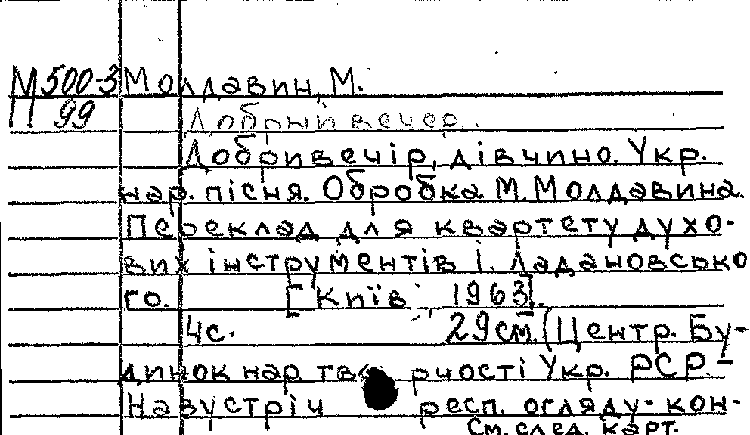 М 500-3 Молдавин, М.
П 99 Добрый вечер.
Добривечір, дівчино. Укр.
нар. пісня. Обробка М. Молдавина.
Переклад для квартету духо-
вих інструментів і. Ладановсько
го. [Київ, 1963].
4с. 29см. (Центр. Бу-
динок нар. творчості Укр. РСР –
Назустріч респ. огляду-кон-
См. след. карт.